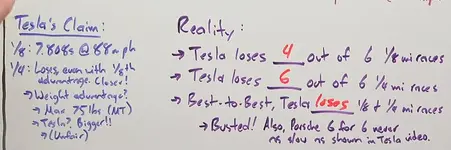 Tesla's Claim:
1/8: 7.808s @ 88mph
1/4: Loses, even with 1/8th
advantage. Closer!
→ Weight advantage?
→ Max 75 lbs (MT)
→ Tesla? Bigger!!
→ (Unfair)
Reality:
→ Tesla loses 4 out of 6 1/8 mi races
→ Tesla loses 6 out of 6 1/4 mi races
→ Best-to-Best, Tesla loses 1/8 & 1/4 mi races
→ Busted! Also, Porsche 6 for 6 never
as slow as shown in Tesla video.